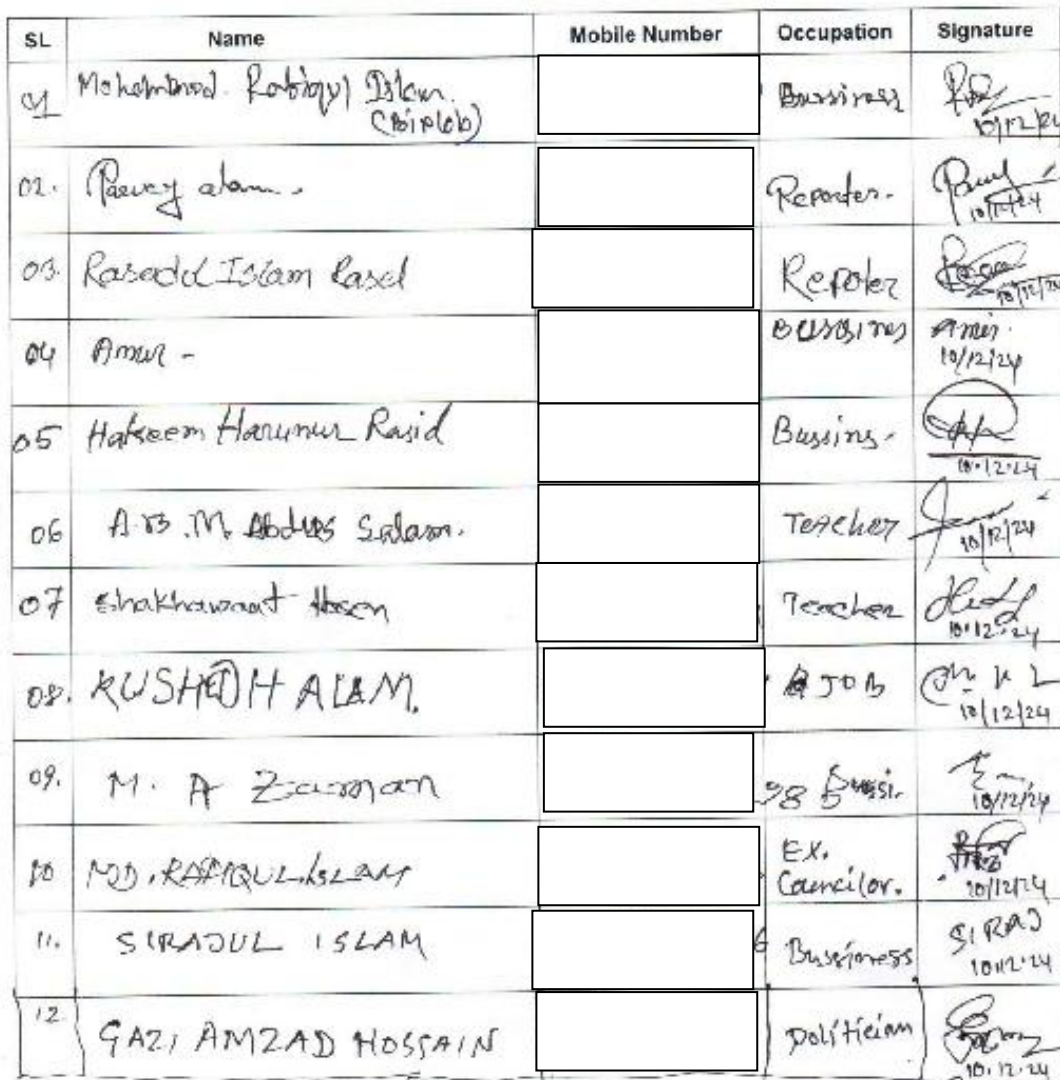 SL Name Mobile Number Occupation Signature
Mohammad Rabiqul Islam Bussiness
(Biplob) 10/12/24
02. Parvej alam. Reporter. 10/12/24
03. Rasedul Islam Rasel Repoter 10/12/24
04 Amur - Bussines Amir.
10/12/24
05 Hakeem Harunur Rasid Bussins.
10.12.24
06 A.B.M. Abdus Salam. Teacher
10/12/24
07 Shakhawaat Hosen Teacher
10.12.24
08. ALAM. JOB
10/12/24
09. M. A Zaman 98 Bussi.
10/12/24
10 MD. RAFIQUL ISLAM EX.
Councilor. 10/12/24
11. SIRAJUL ISLAM 6 Bussiness SIRAJ
10.12.24
12 GAZI AMZAD HOSSAIN Politician
10.12.24